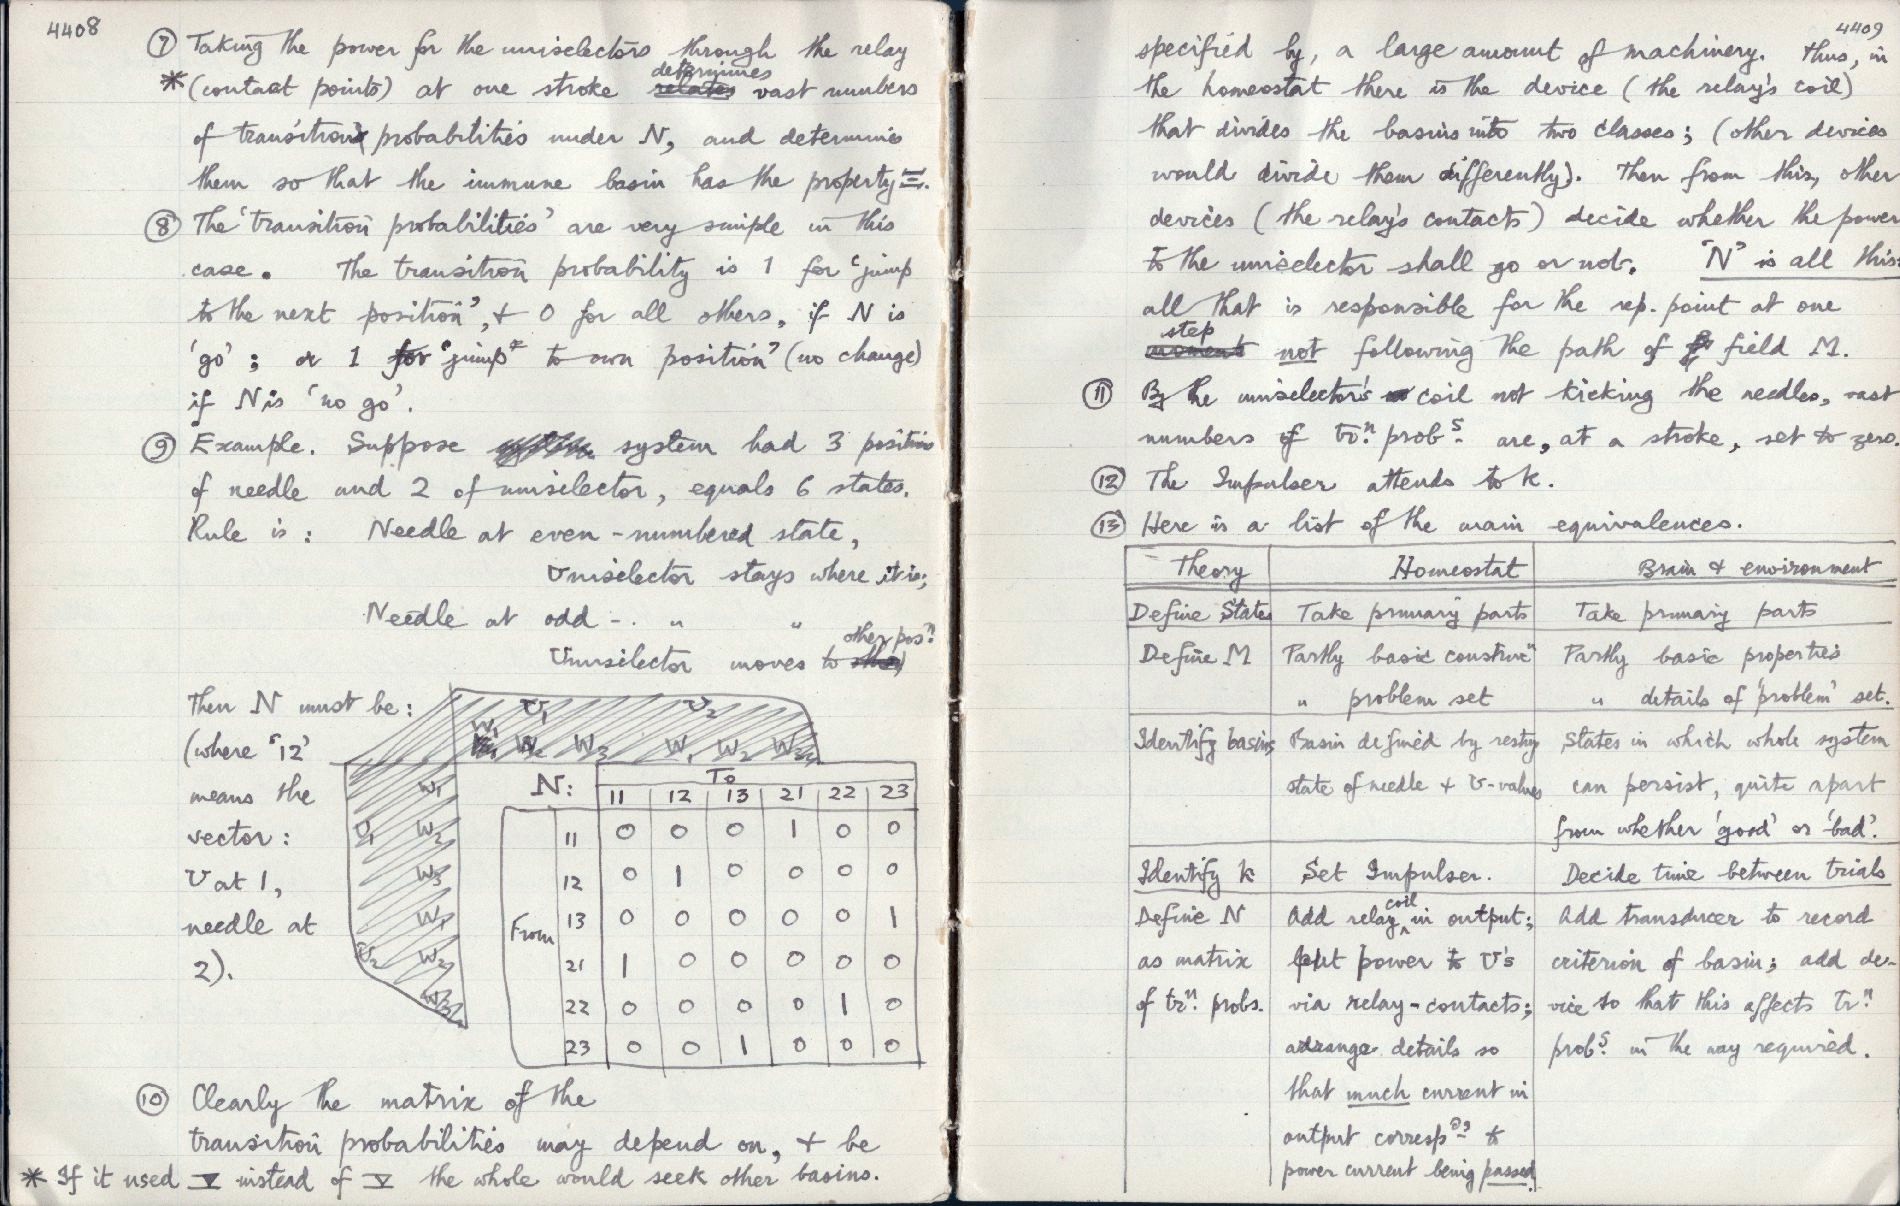 4408
⑦ Taking the power for the uniselectors through the relay
determines
* (contact points) at one stroke relates vast numbers
of transition probabilities under N, and determines
them so that the immune basin has the property
⑧ The 'transition probabilities' are very simple in this
case. The transition probability is 1 for 'jump
to the next position', + 0 for all others, if N is
'go'; or 1 for "jump" to own position' (no change)
if N is 'no go'.
⑨ Example. Suppose system had 3 positions
of needle and 2 of uniselector, equals 6 states.
Rule is: Needle at even-numbered state,
Uniselector stays where it is;
Needle at odd - . " "
other posⁿ.
Uniselector moves to
Then N must be:
(where '12'
means the
vector:
U at 1,
needle at
2).
U₁ U₂
W₁
W₂ W₃ W₁ W₂ W₃
W₁
U₁ W₂
W₃
W₁
U₂ W₂
W₃
N: To
11 12 13 21 22 23
From
11 0 0 0 1 0 0
12 0 1 0 0 0 0
13 0 0 0 0 0 1
21 1 0 0 0 0 0
22 0 0 0 0 1 0
23 0 0 1 0 0 0
⑩ Clearly the matrix of the
transition probabilities may depend on, + be
* If it used V instead of V the whole would seek other basins.
4409
specified by, a large amount of machinery. Thus, in
the homeostat there is the device (the relay's coil)
that divides the basins into two classes; (other devices
would divide them differently). Then from this, other
devices (the relay's contacts) decide whether the power
to the uniselector shall go or not. 'N' is all this:
all that is responsible for the rep. point at one
step
moment not following the path of field M.
⑪ By the uniselector's coil not kicking the needles, vast
numbers of trⁿ. probˢ. are, at a stroke, set to zero.
⑫ The Impulser attends to k.
⑬ Here is a list of the main equivalences.
Theory Homeostat Brain & environment
Define States Take primary parts Take primary parts
Define M Partly basic construcⁿ Partly basic properties
" problem set " details of 'problem' set.
Identify basins Basin defined by resting States in which whole system
state of needle + U-values can persist, quite apart
from whether 'good' or 'bad'.
Identify k Set Impulser. Decide time between trials
coil
Define N Add relay ^ in output; Add transducer to record
as matrix put power to U's criterion of basin; add de-
of trⁿ. probs. via relay-contacts; vice so that this affects trⁿ.
arrange details so probˢ. in the way required.
that much current in
output correspᵈˢ to
power current being passed.